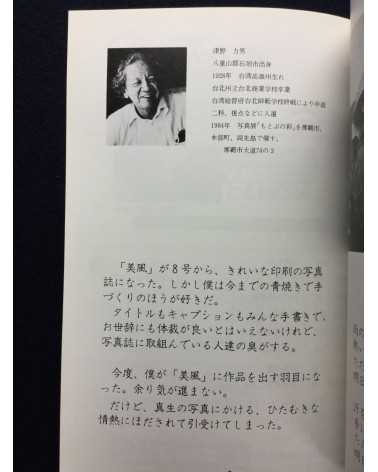 津野 力男
八重山郡石垣市出身
1928年 台湾高雄州生れ
台北州立台北商業学校卒業
台湾総督府台北師範学校終戦により中退
二科、視点などに入選
1984年 写真展「もとぶの彩」を那覇市、
本部町、両先島で催す。
那覇市大道74の3
「美風」が8号から、きれいな印刷の写真
誌になった。しかし僕は今までの青焼きで手
づくりのほうが好きだ。
タイトルもキャプションもみんな手書きで、
お世辞にも体裁が良いとはいえないけれど、
写真誌に取組んでいる人達の臭がする。
今度、僕が「美風」に作品を出す羽目にな
った。余り気が進まない。
だけど、真生の写真にかける、ひたむきな
情熱にほだされて引受けてしまった。